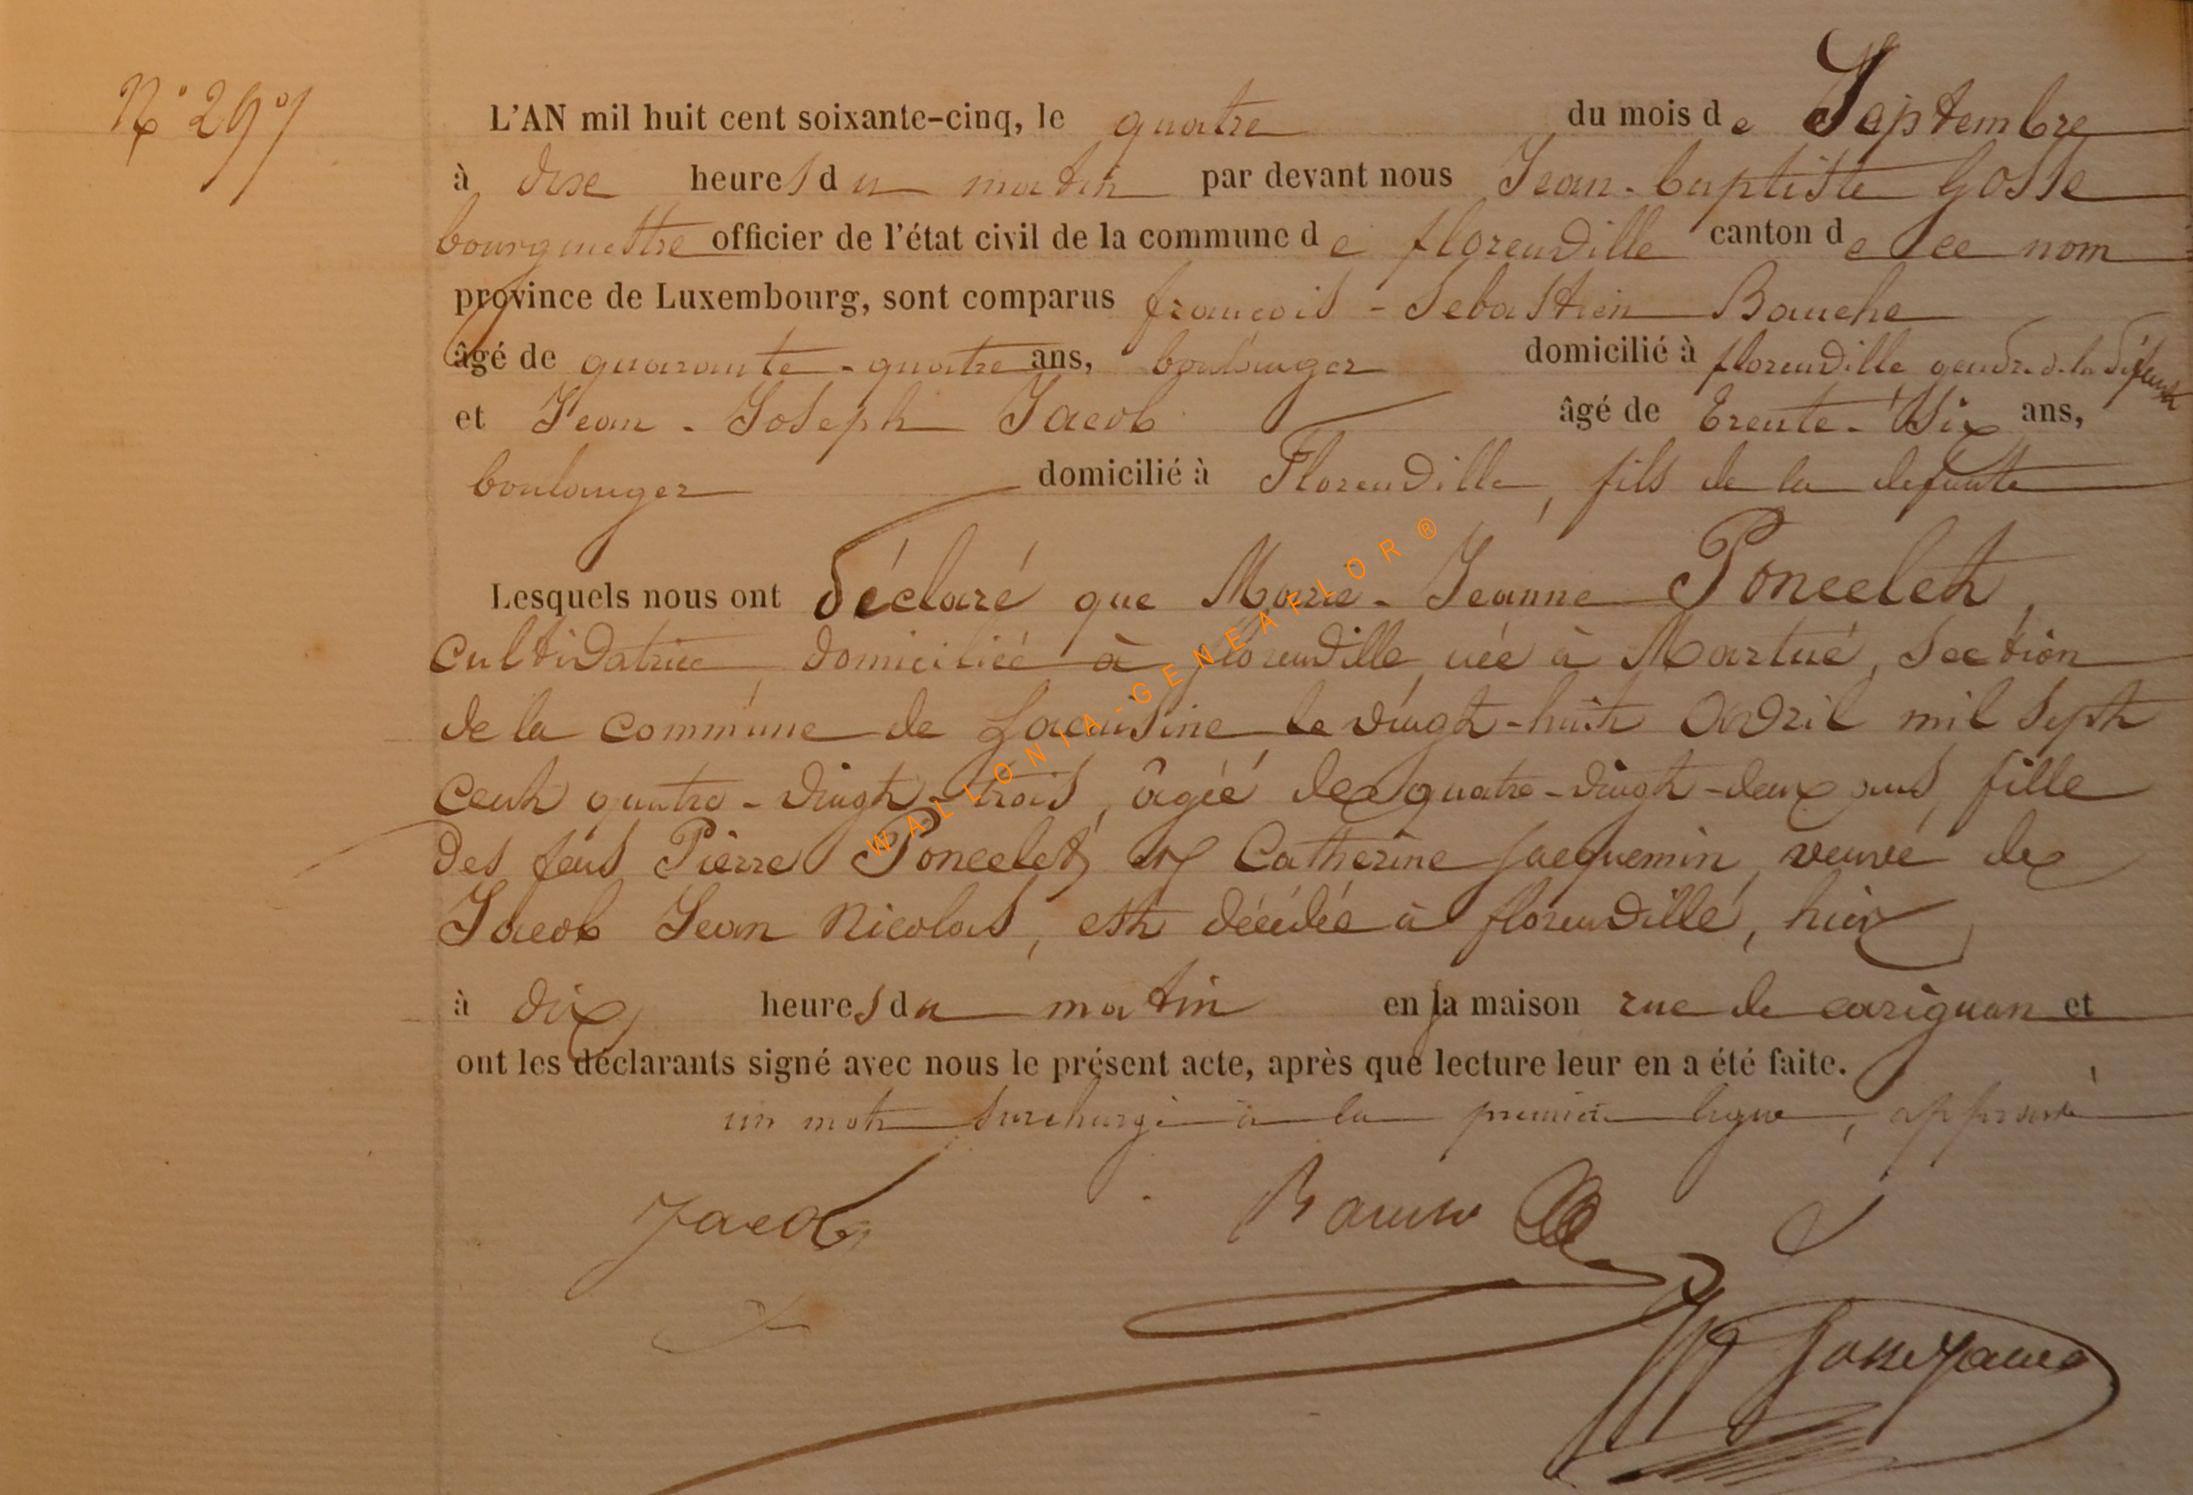 N° 29
L'AN mil huit cent soixante-cinq, le quatre du mois de Septembre
à dix heures du matin par devant nous Jean-baptiste Gosse
bourgmestre officier de l'état civil de la commune de florenville canton de ce nom
province de Luxembourg, sont comparus françois-Sebastien Bauche
âgé de quarante-quatre ans, boulanger domicilié à florenville gendre de la défunte
et Jean-Joseph Jacob âgé de trente-Six ans,
boulanger domicilié à Florenville, fils de la defunte
Lesquels nous ont déclaré que Marie-Jeanne Poncelet,
cultivatrice, domiciliée à florenville, née à Martué, section
de la commune de Lacuisine le vingt-huit avril mil sept
cent quatre-vingt-trois, âgée de quatre-vingt-deux ans, fille
des feus Pierre Poncelet et Catherine Jacquemin, veuve de
Jacob Jean Nicolas, est décédée à florenville, hier
à dix heures du matin en sa maison rue de carignan et
ont les déclarants signé avec nous le présent acte, après que lecture leur en a été faite.
un mot surchargé à la première ligne, approuvé
Jacob Bauche
WALLONIA-GENEAFLOR®